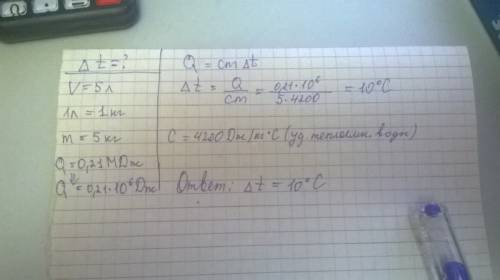 Δt=?
V=5л
1л=1кг
m=5кг
Q=0,21МДж
Q=0,21·10⁶Дж
Q=cmΔt
Δt = Q/cm = 0,21·10⁶/5·4200 = 10°C
C=4200Дж/кг°C (уд теплоемк воды)
Ответ: Δt=10°C